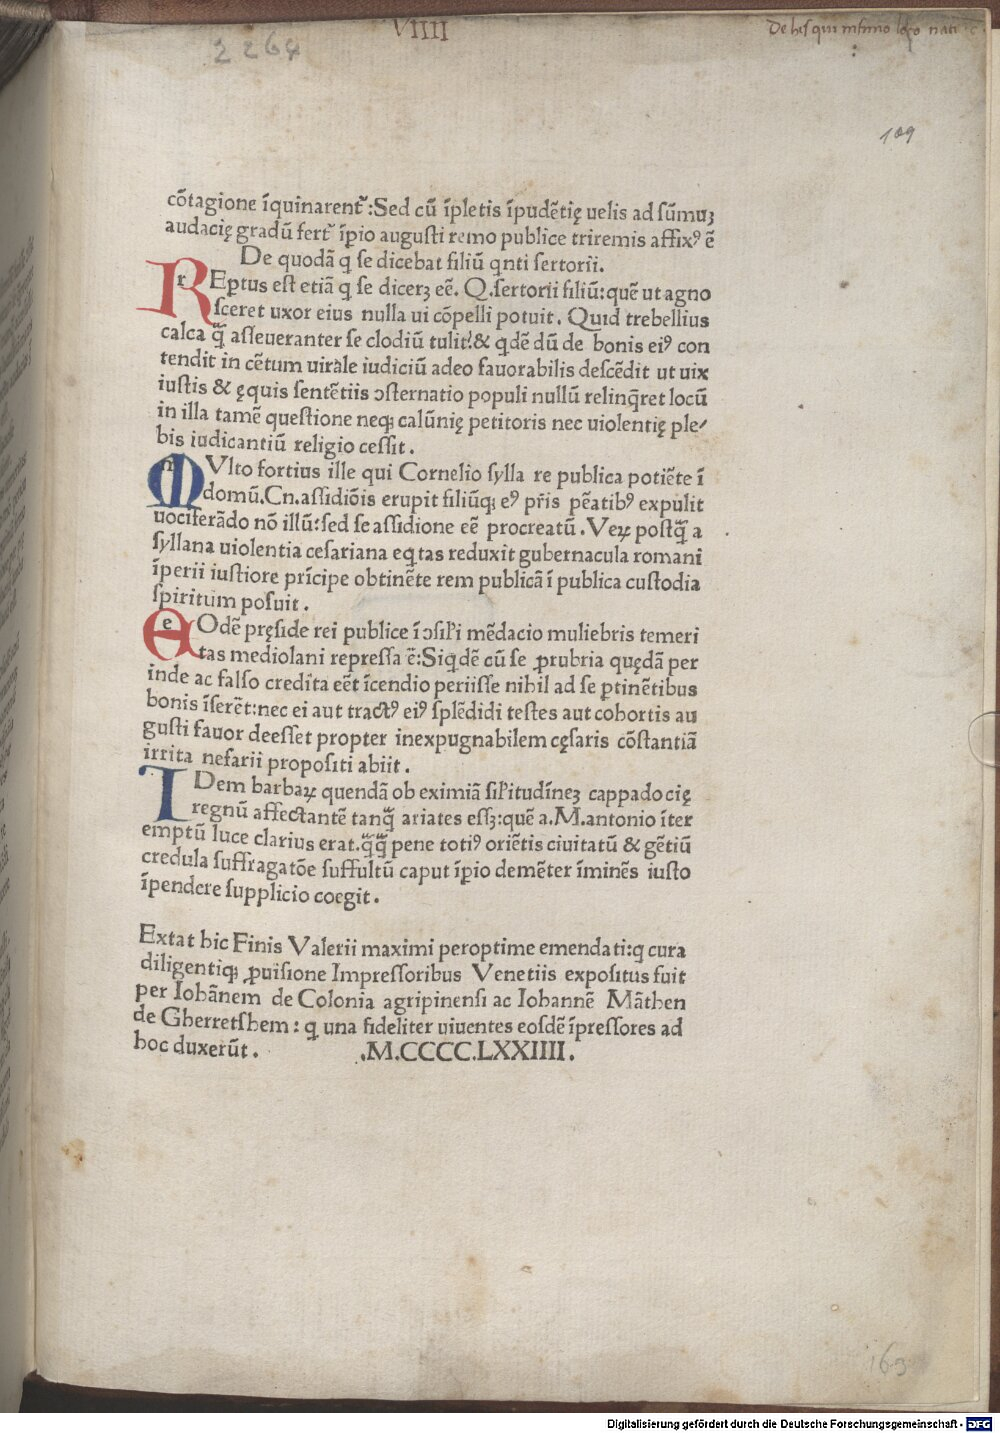 VIIII
De his qui infimo loco nati
2264
109
cõtagione īquinarent᷑:Sed cū īpletis īpudētię uelis ad sūmuꝫ
audacię gradū fert᷑ īꝑio augusti remo publice triremis affixꝰ ē
De quodã q se dicebat filiū qnti sertorii.
rEꝑtus est etiã q se dicerꝫ eē. Q.sertorii filiū:quē ut agno
sceret uxor eius nulla ui cõpelli potuit. Quid trebellius
calca q̃ asseueranter se clodiū tulit!& qdē dū de bonis eiꝰ con
tendit in cētum uirale iudiciū adeo fauorabilis descēdit ut uix
iustis & ęquis sentētiis ↄsternatio populi nullū relinq̃ret locū
in illa tamē questione neqꝫ calūnię petitoris nec uiolentię ple⸗
bis iudicantiū religio cessit.
mVlto fortius ille qui Cornelio sylla re publica potiēte ī
domū.Cn.assidiõis erupit filiūqꝫ eꝰ pr̃is pēatibꝰ expulit
uociferãdo nõ illū:sed se assidione eē procreatū. Veꝝ postq̃ a
syllana uiolentia cesariana eqtas reduxit gubernacula romani
īperii iustiore prīcipe obtinēte rem publicã ī publica custodia
spiritum posuit.
eOdē pręside rei publice ī ↄsil'i mēdacio muliebris temeri
tas mediolani repressa ē:Siqdē cū se ꝓrubria quędã per
inde ac falso credita eēt īcendio periisse nihil ad se ꝑtinētibus
bonis īserēt:nec ei aut tractꝰ eiꝰ splēdidi testes aut cohortis au
gusti fauor deesset propter inexpugnabilem cęsaris cõstantiã
irrita nefarii propositi abiit.
IDem barbaꝝ quendã ob eximiã sil'itudīneꝫ cappadocię
regnū affectantē tanq̃ ariates essꝫ:quē a.M.antonio īter
emptū luce clarius erat.q̃q̃ pene totiꝰ oriētis ciuitatū & gētiū
credula suffragatõe suffultū caput īꝑio demēter īminēs iusto
īpendere supplicio coegit.
Extat hic Finis Valerii maximi peroptime emendati:q cura
diligentiqꝫ ꝓuisione Impressoribus Venetiis expositus fuit
per Iohãnem de Colonia agripinensi ac Iohannē Mãthen
de Gherretshem: q una fideliter uiuentes eosdē īpressores ad
hoc duxerūt.          .M.CCCC.LXXIIII.
169
Digitalisierung gefördert durch die Deutsche Forschungsgemeinschaft - DFG